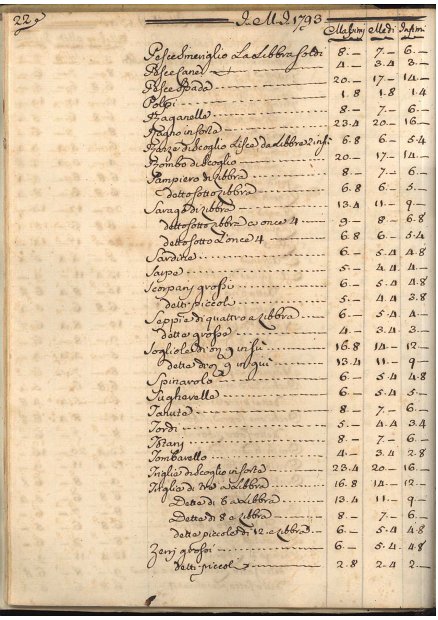 22
1793
Massimi Medi Infimi
Pesce Smeriglio La Libbra Soldi 8.- 7.- 6.-
Pesce Cane 4.- 3.4 3.-
Pesce Spada 20.- 17.- 14.-
Polpi 1.8 1.8 1.4
Paganelle 8.- 7.- 6.-
in sorte 23.4 20.- 16.-
di Scoglio Lisce da Libbre 2 in 6.8 6.- 5.4
Rombo di Scoglio 20.- 17.- 14.-
Sampiero di Libbra 8.- 7.- 6.-
detto sotto Libbra 6.8 6.- 5.-
Sarago di Libbra 13.4 11.- 9.-
detto sotto Libbra a once 4 9.- 8.- 6.8
detto sotto L'once 4 6.8 6.- 5.4
Sardine 6.- 5.4 4.8
Salpe 5.- 4.4 4.-
Scorpani grossi 6.- 5.4 4.8
detti piccoli 5.- 4.4 3.8
Seppie di quattro a Libbra 6.- 5.4 4.-
dette grosse 4.- 3.4 3.-
Sogliole di on 9 in sù 16.8 14.- 12.-
dette da on 9 in giù 13.4 11.- 9.-
Spinarolo 6.- 5.4 4.8
Sugherelle 6.- 5.4 5.-
Tanuta 8.- 7.- 6.-
Tordi 5.- 4.4 3.4
8.- 7.- 6.-
Tombarello 4.- 3.4 2.8
Triglie di Scoglio in sorte 23.4 20.- 16.-
Triglie di Tre a Libbra 16.8 14.- 12.-
Dette di 6 a Libbra 13.4 11.- 9.-
Dette di 8 a Libbra 8.- 7.- 6.-
dette piccole di 12 a Libbra 6.- 5.4 4.8
Zerri grossi 6.- 5.4 4.8
detti piccoli 2.8 2.4 2.-